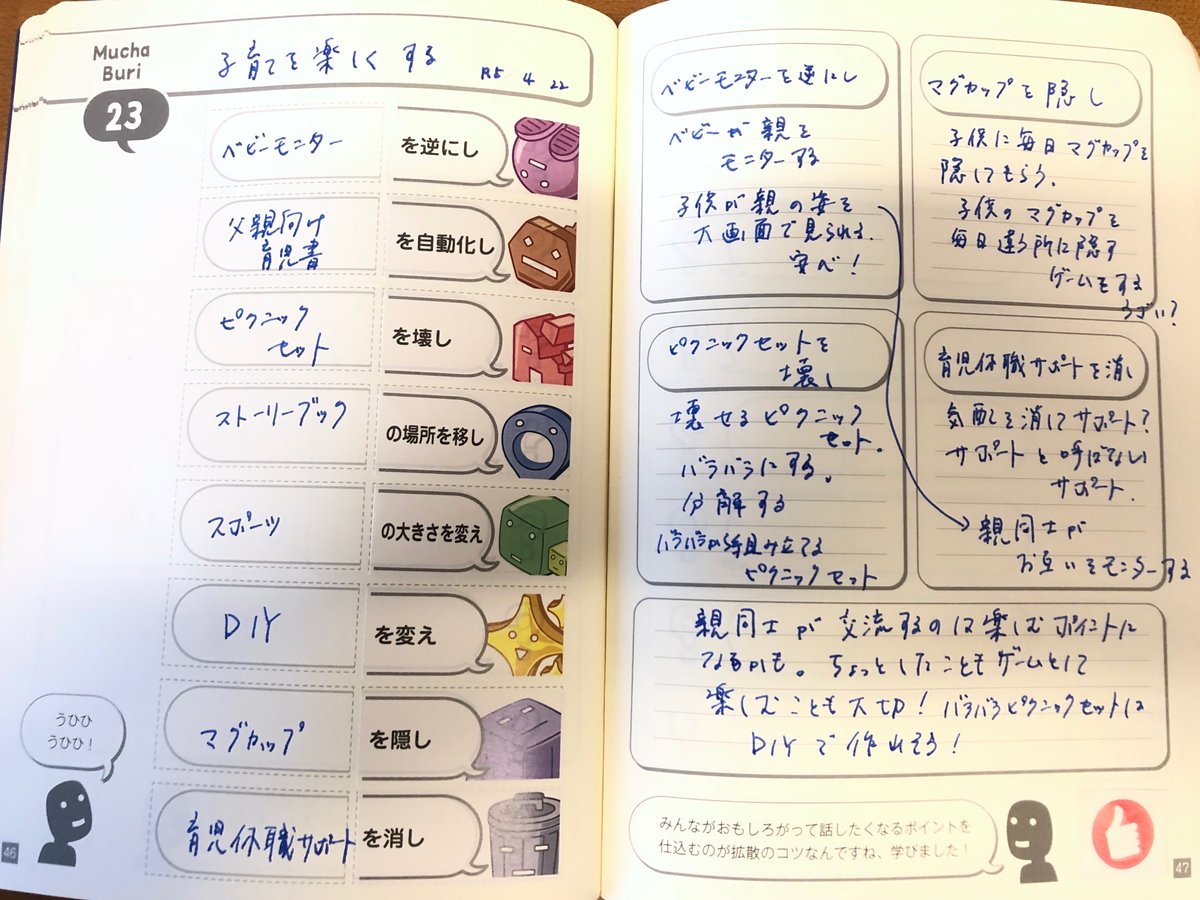 Mucha
Buri
23
子育てを楽しくする
R5 4 22
ベビーモニター
を逆にし
父親向け
育児書
を自動化し
ピクニック
セット
を壊し
ストーリーブック
の場所を移し
スポーツ
の大きさを変え
DIY
を変え
マグカップ
を隠し
育児休職サポート
を消し
うひひ
うひひ!
46
ベビーモニターを逆にし
ベビーが親を
モニターする
子供が親の姿を
大画面で見られる。
安心!
マグカップを隠し
子供に毎日マグカップを
隠してもらう。
子供のマグカップを
毎日違う所に隠す
ゲームをする
うざい?
ピクニックセットを
壊し
壊せるピクニック
セット。
バラバラにする。
分解する
バラバラから組み立てる
ピクニックセット
育児休職サポートを消し
気配を消してサポート?
サポートと呼ばない
サポート。
親同士が
お互いをモニターする
親同士が交流するのは楽しむポイントに
なるかも。ちょっとしたこともゲームとして
楽しむことも大切!バラバラピクニックセットは
DIYで作れそう!
みんながおもしろがって話したくなるポイントを
仕込むのが拡散のコツなんですね、学びました!
47